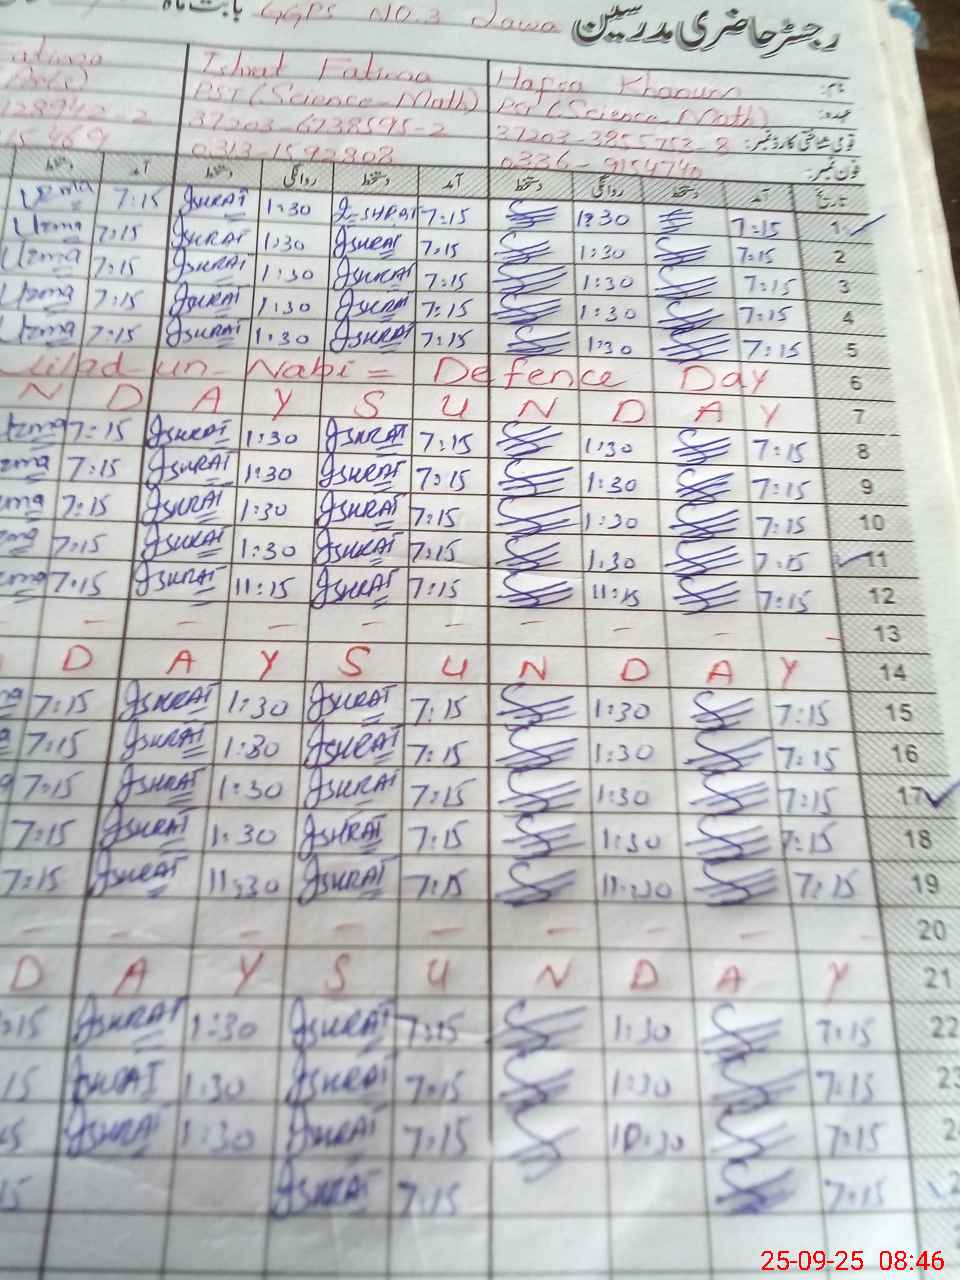 رجسٹر حاضری مدرسین بابت ماہ GGPS NO.3 Jawa
نام: Hafsa Khanum Ishrat Fatima
عہدہ: PST (Science-Math) PST (Science-Math)
قومی شناختی کارڈ نمبر: 37203-3855752-8 37203-6738595-2
فون نمبر: 0336-9154740 0313-1592808
تاریخ آمد دستخط روانگی دستخط آمد دستخط روانگی دستخط آمد دستخط
1 7:15 1:30 7:15 I-SHRAT 1:30 ISHRAT 7:15 Uzma
2 7:15 1:30 7:15 ISHRAT 1:30 ISHRAT 7:15 Uzma
3 7:15 1:30 7:15 ISHRAT 1:30 ISHRAT 7:15 Uzma
4 7:15 1:30 7:15 ISHRAT 1:30 ISHRAT 7:15 Uzma
5 7:15 1:30 7:15 ISHRAT 1:30 ISHRAT 7:15 Uzma
6 Milad-un-Nabi = Defence Day
7 N D A Y S U N D A Y
8 7:15 1:30 7:15 ISHRAT 1:30 ISHRAT 7:15
9 7:15 1:30 7:15 ISHRAT 1:30 ISHRAT 7:15
10 7:15 1:30 7:15 ISHRAT 1:30 ISHRAT 7:15
11 7:15 1:30 7:15 ISHRAT 1:30 ISHRAT 7:15
12 7:15 11:15 7:15 ISHRAT 11:15 ISHRAT 7:15
13 - - - - - - - - -
14 D A Y S U N D A Y
15 7:15 1:30 7:15 ISHRAT 1:30 ISHRAT 7:15
16 7:15 1:30 7:15 ISHRAT 1:30 ISHRAT 7:15
17 7:15 1:30 7:15 ISHRAT 1:30 ISHRAT 7:15
18 7:15 1:30 7:15 ISHRAT 1:30 ISHRAT 7:15
19 7:15 11:30 7:15 ISHRAT 11:30 ISHRAT 7:15
20 - - - - - - - - -
21 D A Y S U N D A Y
22 7:15 1:30 7:15 ISHRAT 1:30 ISHRAT :15
23 7:15 1:30 7:15 ISHRAT 1:30 ISHRAT 15
7:15 10:30 7:15 ISHRAT 1:30 ISHRAT
7:15 7:15 ISHRAT
25-09-25 08:46